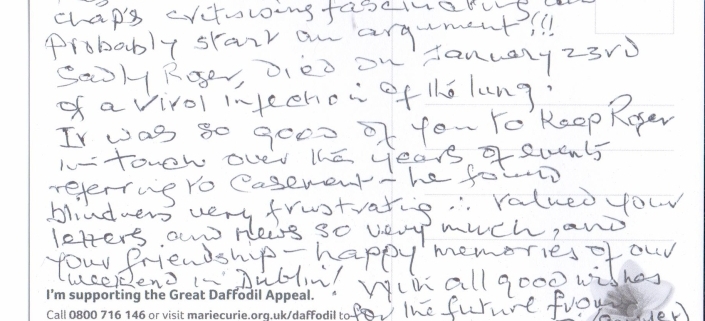 chap's critisising
Probably start an argument!!!
Sadly Roger, Died on January 23rd
of a Virol infection of the lung.
It was so good of you to keep Roger
in-touch over the years of events
referring to Casement - he found
blindness very frustrating ∴ valued your
letters and news so very much, and
your friendship - happy memories of our
weekend in Dublin! With all good wishes
I'm supporting the Great Daffodil Appeal.
for the future from
Call 0800 716 146 or visit mariecurie.org.uk/daffodil to